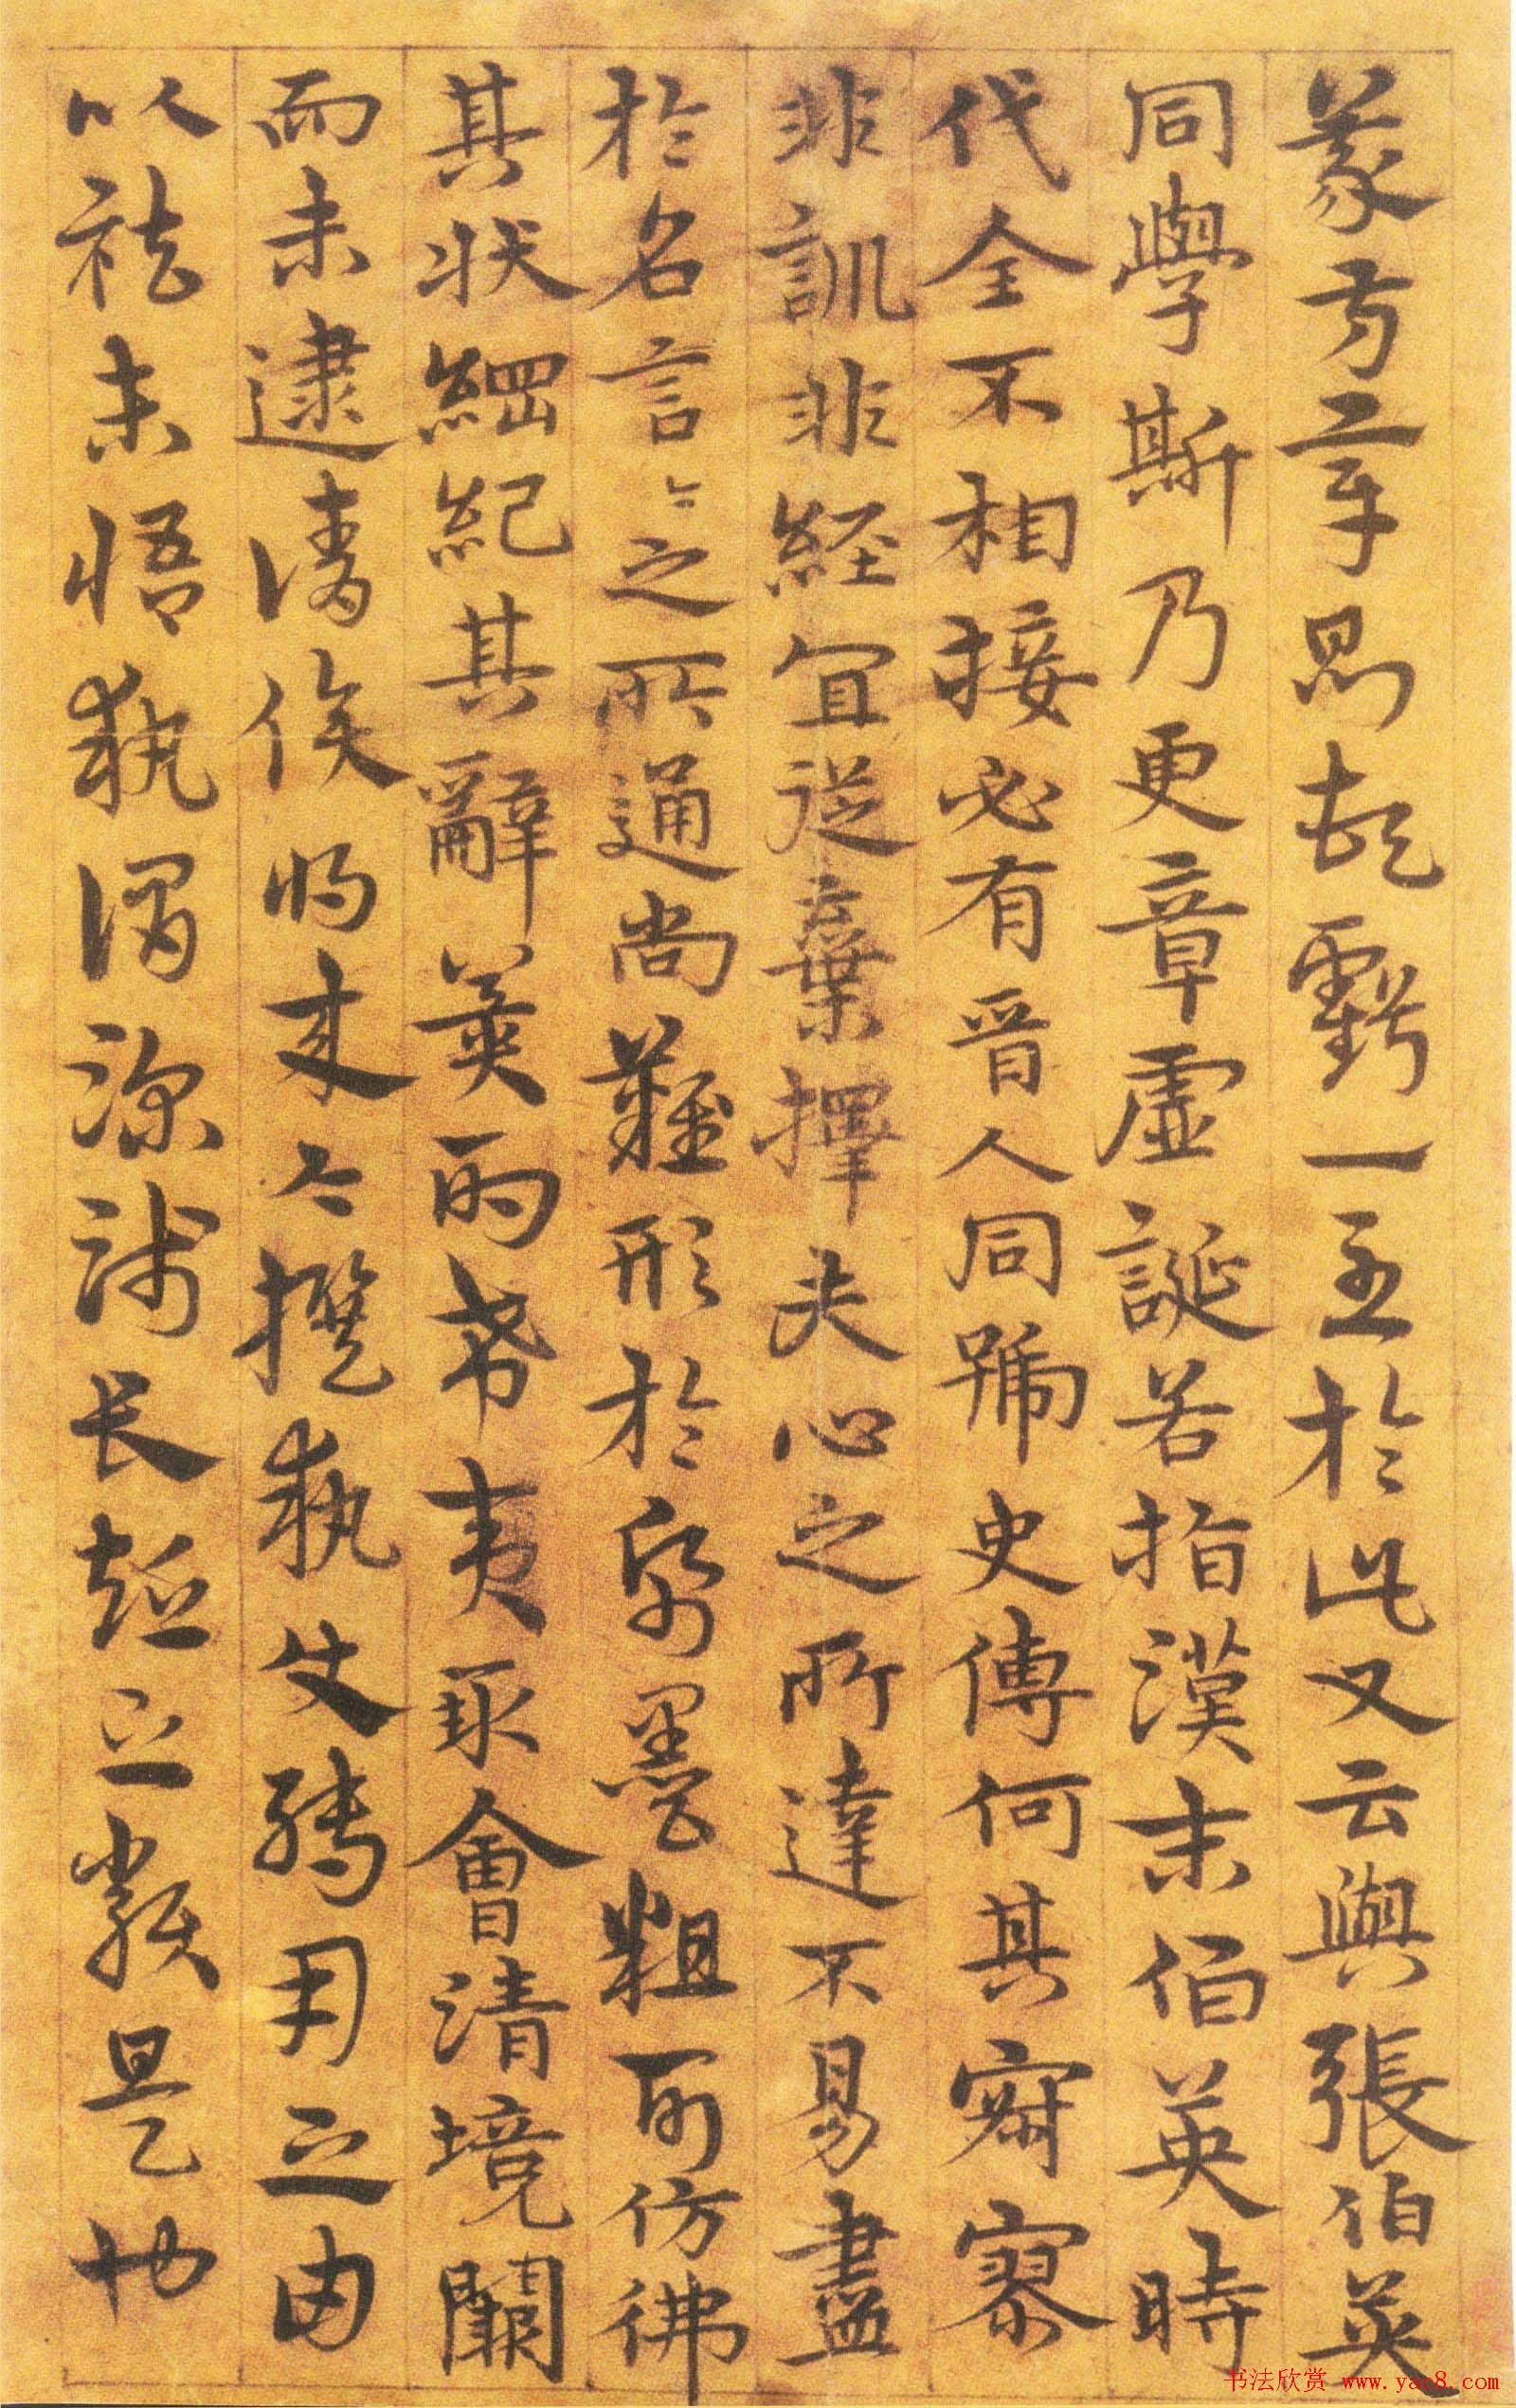 篆尚草思起虧一至於此又云與張伯英
同學斯乃更章虛誕若指漢末伯英時
代全不相接必有晉人同號史傳何其寂寥
非訓非經宜從棄擇夫心之所達不易盡
於名言〻之所通尚難形於紙墨粗可仿彿
其狀綱紀其辭冀酌希夷取會清境闕
而未逮請俟將来〻撰執使轉用之由
以祛未悟執謂深淺長短之類是也
书法欣赏 www.yac8.com